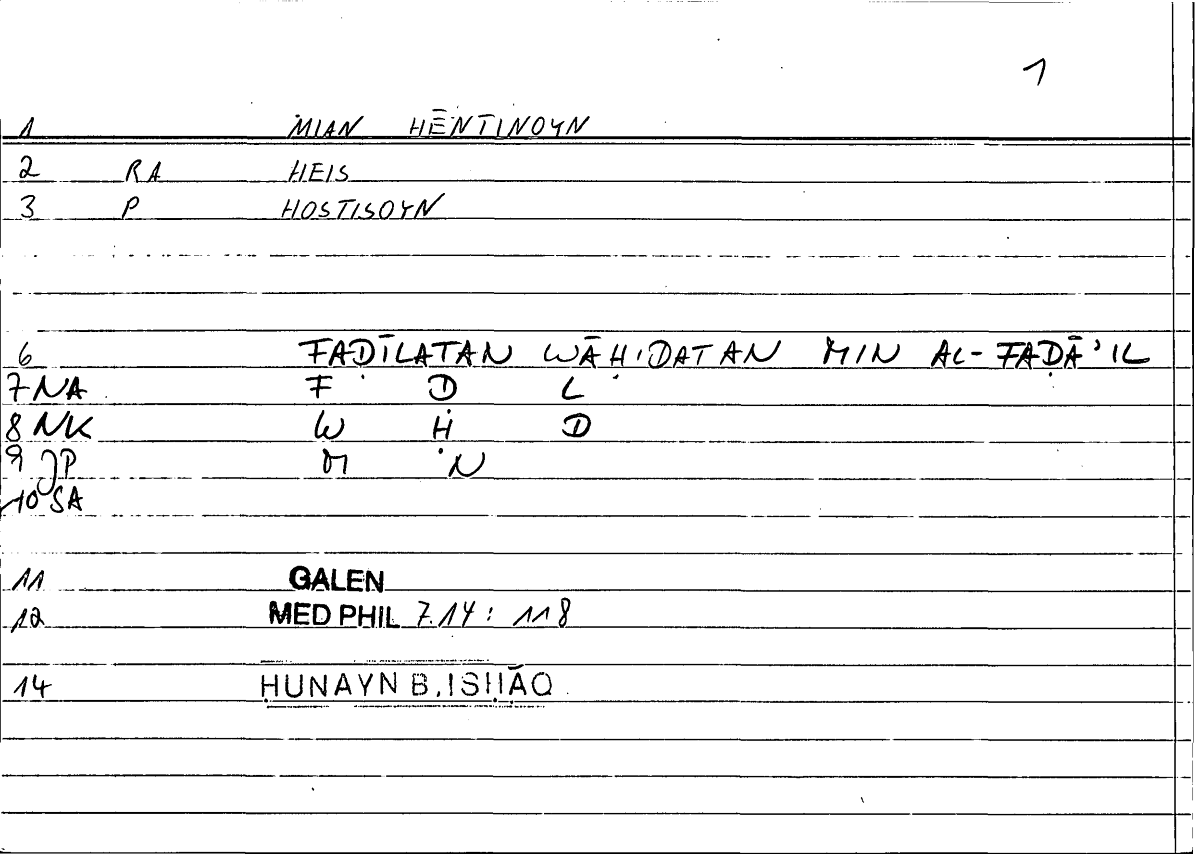 1
1 MIAN HĒNTINOYN
2 RA HEIS
3 P HOSTISOYN
6 FAḌĪLATAN WĀḤIDATAN MIN AL-FAḌĀ'IL
7 NA F Ḍ L
8 NK W Ḥ D
9 JP M N
10 SA
11 GALEN
12 MED PHIL 7.14: 118
14 ḤUNAYN B. ISḤĀQ